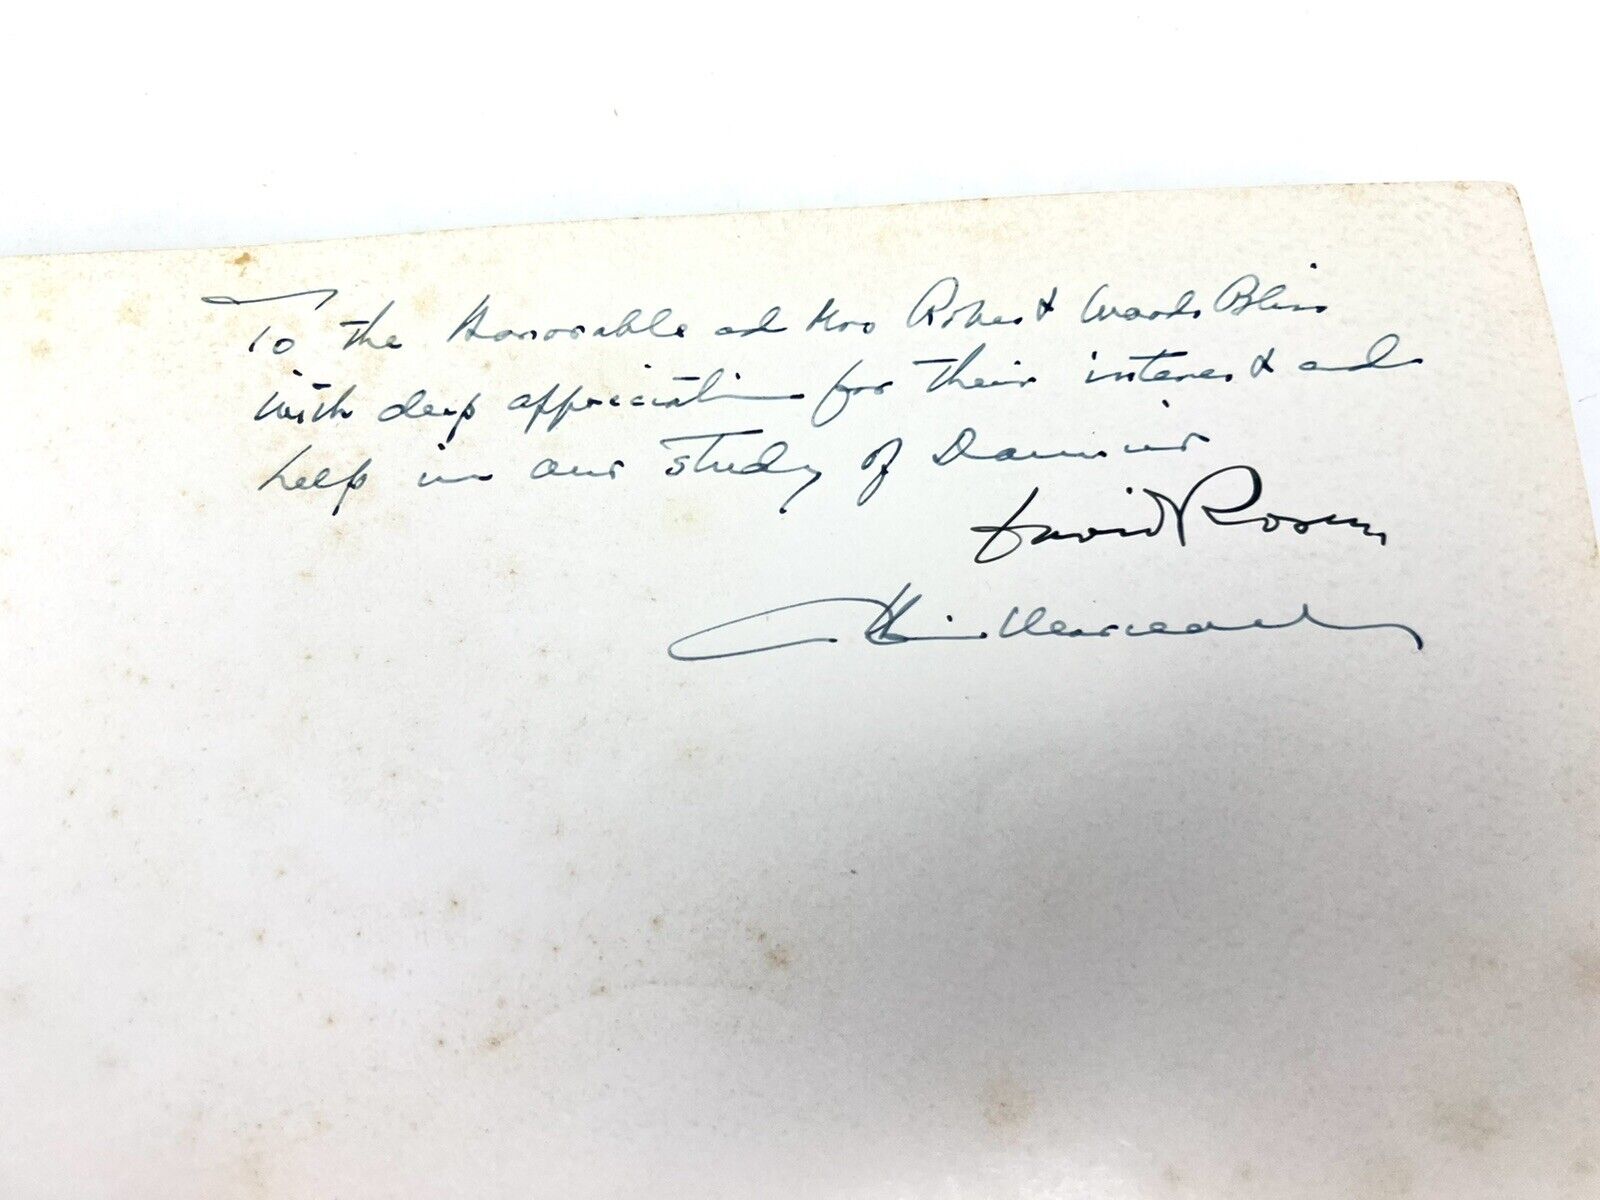 To the Honorable and Mrs Robert Woods Bliss
with deep appreciation for their interest and
help in our study of Daumier
David Rosen
Marceau